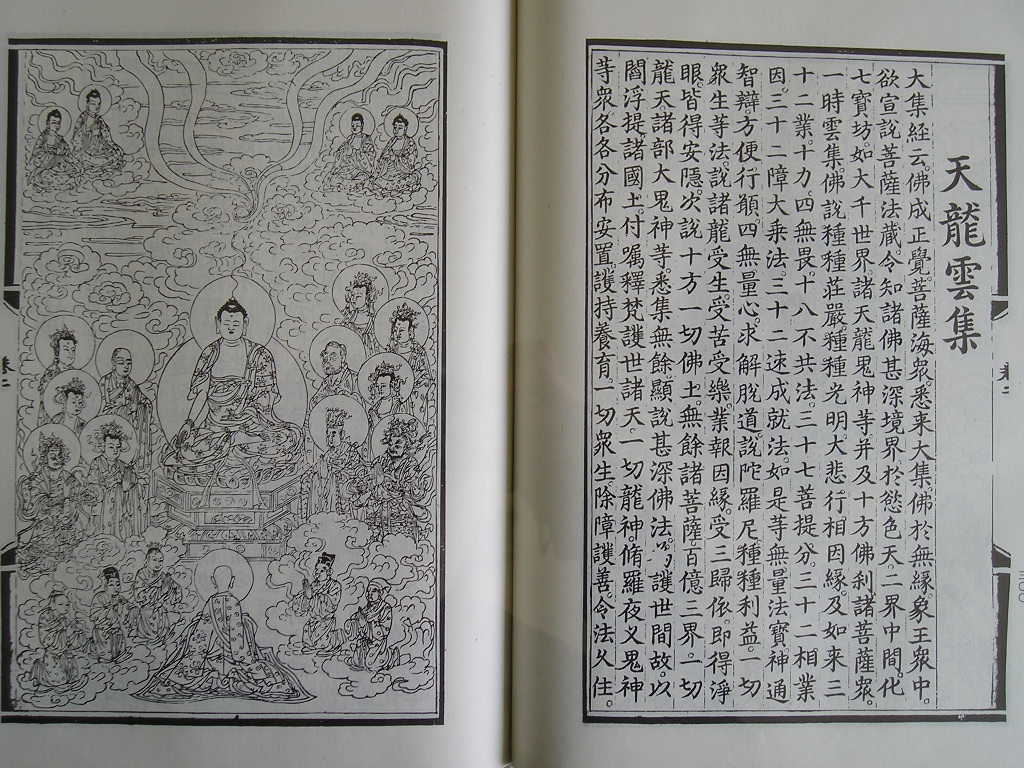 天龍雲集
大集経云。佛成正覺。菩薩海衆。悉来大集。佛於無緣。象王衆中。
欲宣說菩薩法蔵。令知諸佛甚深境界。於慾色天。二界中間。化
七寳坊。如大千世界。諸天龍鬼神等。并及十方佛刹諸菩薩衆。
一時雲集。佛說種種莊嚴。種種光明。大悲行相因緣。及如来三
十二業。十力四無畏。十八不共法。三十七菩提分。三十二相業
因。三十二障大乗法。三十二速成就法。如是等無量法寳。神通
智辯。方便行願。四無量心。求解脫道。說陀羅尼種種利益。一切
衆生等法。說諸龍受生受苦受樂。業報因緣。受三歸依。即得淨
眼。皆得安隱。次說十方一切佛土。無餘諸菩薩。百億三界。一切
龍天諸部大鬼神等。悉集無餘。顯說甚深佛法。為護世間故。以
閻浮提諸國土。付囑釋梵護世諸天。一切龍神。脩羅夜叉鬼神
等衆。各各分布安置。護持養育。一切衆生。除障護善。令法久住。
卷二